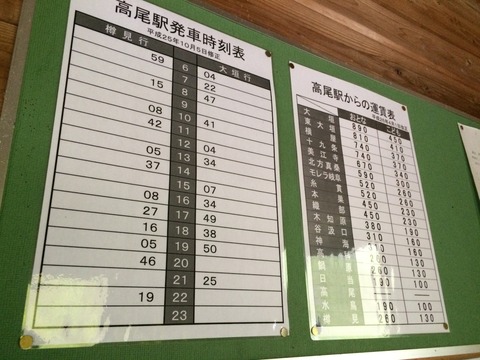 高尾駅発車時刻表
平成25年10月5日修正
樽見行 大垣行
59 6 04
7 22
15 8 47
9
08 10 41
42 11
12 04
05 13 34
37 14
15 07
08 16 34
27 17 49
16 18 38
05 19 50
46 20
21 25
19 22
23
高尾駅からの運賃表
おとな こども
大垣 890 450
東大垣 810 410
横屋 740 370
十九条 740 370
美江寺 670 340
北方真桑 590 300
モレラ岐阜 520 260
糸貫 520 260
本巣 450 230
織部 450 230
木知原 380 190
谷汲口 310 160
神海 310 160
高科 260 130
鍋原 260 130
日当 190 100
高尾 — —
水鳥 190 100
樽見 260 130